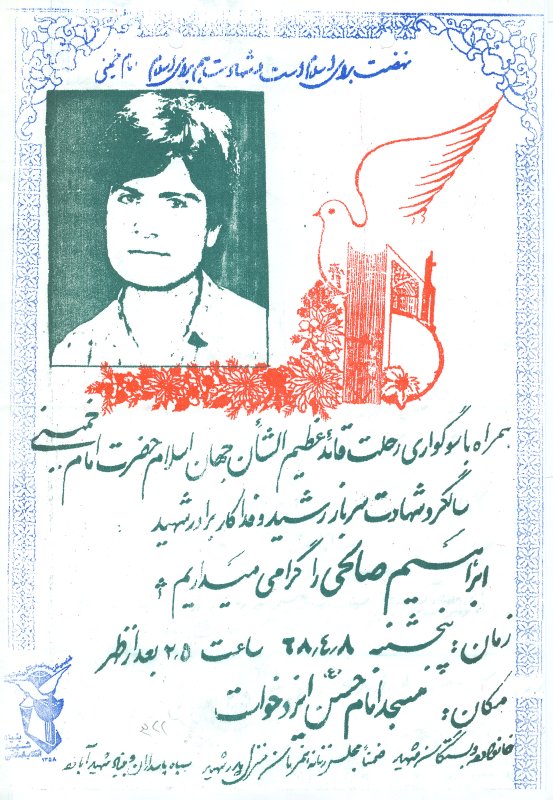 نهضت برای اسلام است و شهادت هم برای اسلام امام خمینی
همراه با سوگواری رحلت قائد عظیم الشأن جهان اسلام حضرت امام خمینی
سالگرد شهادت سرباز رشید و فداکار برادر شهید
ابراهیم صالحی را گرامی میداریم
زمان: پنجشنبه ۶۸٫۴٫۸ ساعت ۲٫۵ بعد از ظهر
مکان: مسجد امام حسن (ع) ایزدخواست
خانواده و بستگان شهید ضمناً مجلس زنانه نفر منزل پدر شهید سپاه پاسداران و بنیاد شهید آباده
بنیاد شهید
۱۳۵۸